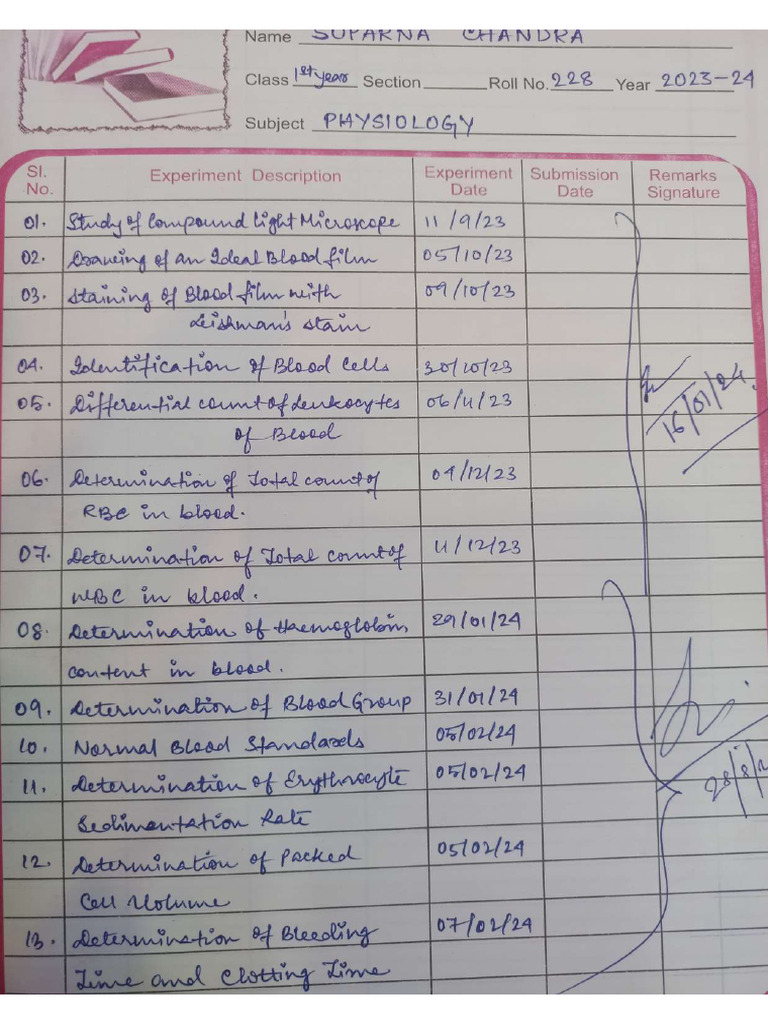 Name SUPARNA CHANDRA
Class 1st year Section Roll No. 228 Year 2023-24
Subject PHYSIOLOGY
Sl. No. Experiment Description Experiment Date Submission Date Remarks Signature
01. Study of Compound Light Microscope 11/9/23
02. Drawing of an Ideal Blood film 05/10/23
03. Staining of Blood film with 09/10/23
Leishman's Stain
04. Identification of Blood Cells 30/10/23
05. Differential count of Leukocytes 06/11/23
of Blood
06. Determination of Total count of 04/12/23
RBC in blood.
07. Determination of Total count of 11/12/23
WBC in blood.
08. Determination of Haemoglobin 29/01/24
content in blood.
09. Determination of Blood Group 31/01/24
10. Normal Blood Standards 05/02/24
11. Determination of Erythrocyte 05/02/24
Sedimentation Rate
12. Determination of Packed 05/02/24
Cell Volume
13. Determination of Bleeding 07/02/24
Time and Clotting Time
16/01/24